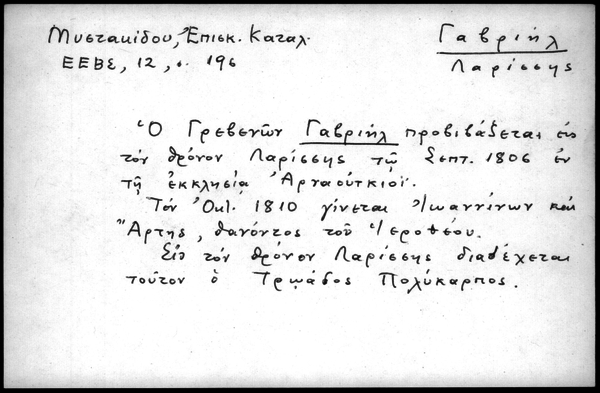 Μυστακίδου, Ἐπισκ. Καταλ.
ΕΕΒΣ, 12, σ. 196
Γαβριήλ
Λαρίσσης
Ὁ Γρεβενῶν Γαβριήλ προβιβάζεται εἰς
τὸν θρόνον Λαρίσσης τῷ Σεπτ. 1806 ἐν
τῇ ἐκκλησίᾳ Ἀρναούτκιοϊ.
Τὸν Ὀκτ. 1810 γίνεται Ἰωαννίνων καὶ
Ἄρτης, θανόντος τοῦ Ἱεροθέου.
Εἰς τὸν θρόνον Λαρίσσης διαδέχεται
τοῦτον ὁ Τρῳάδος Πολύκαρπος.